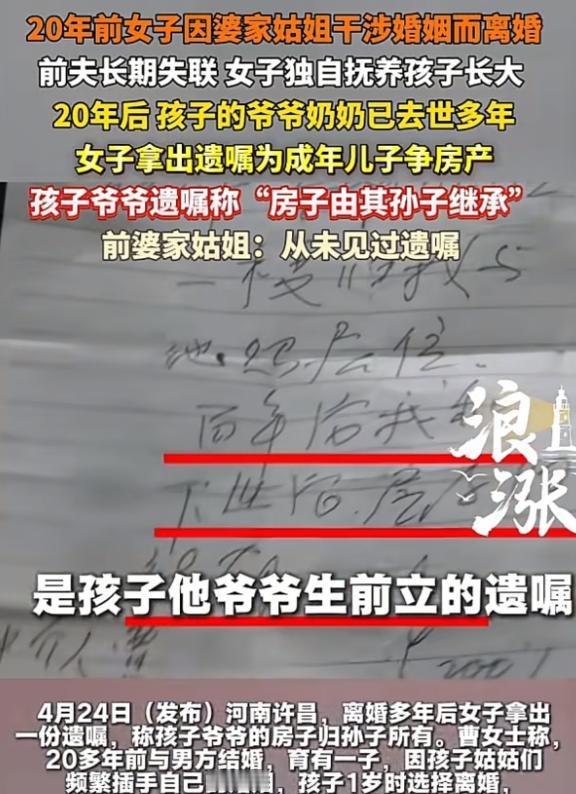 20年前女子因婆家姑姐干涉婚姻而离婚
前夫长期失联 女子独自抚养孩子长大
20年后 孩子的爷爷奶奶已去世多年
女子拿出遗嘱为成年儿子争房产
孩子爷爷遗嘱称“房子由其孙子继承”
前婆家姑姐：从未见过遗嘱
一楼归我与
他妈居住.
百年后我
下世后.房
浪
涨
是孩子他爷爷生前立的遗嘱
介人
4月24日（发布）河南许昌，离婚多年后女子拿出
一份遗嘱，称孩子爷爷的房子归孙子所有。曹女士称，
20多年前与男方结婚，育有一子，因孩子姑姑们
频繁插手自己，孩子1岁时选择离婚，